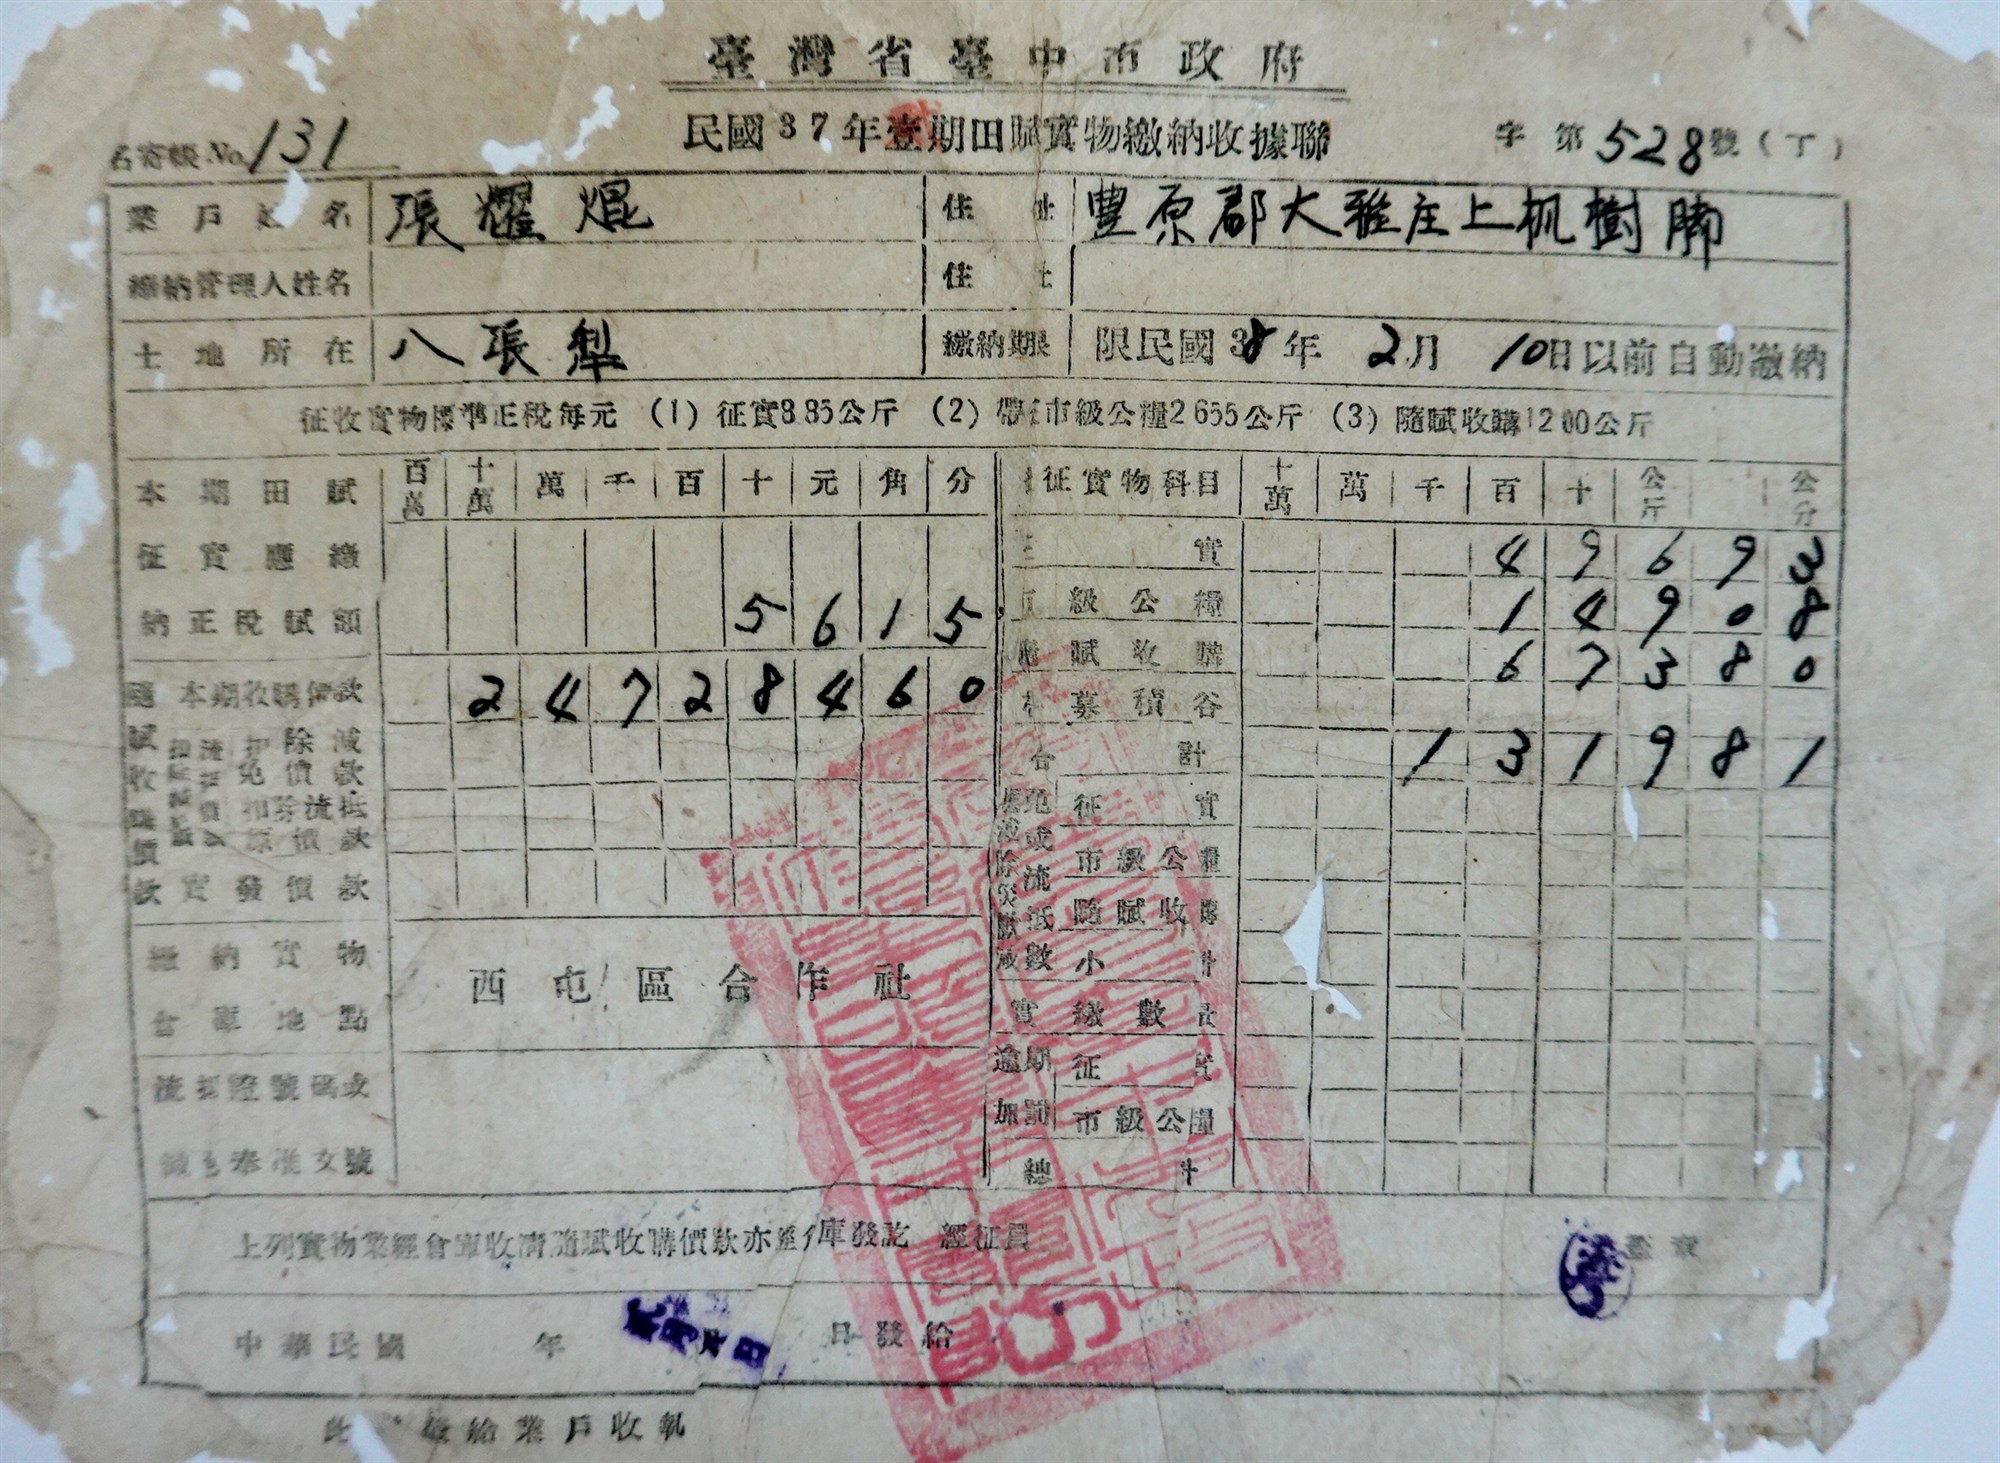 臺灣省臺中市政府
民國37年壹期田賦實物繳納收據聯
名寄帳No. 131
字第528號(丁)
業戶姓名 張耀焜 住址 豐原郡大雅庄上枫樹腩
繳納管理人姓名 住
土地所在 八張犁 繳納期限 限民國38年2月10日以前自動繳納
征收實物標準正稅每元 (1) 征實8.85公斤 (2) 帶征市級公糧2.655公斤 (3) 隨賦收購12.00公斤
本期田賦 百萬 十萬 萬 千 百 十 元 角 分 征實物科目 十萬 萬 千 百 十 公斤 公分
征實應繳 實 4 9 6 9 3
納正稅賦額 5 6 1 5 級公糧 1 4 9 0 8
賦收購 6 7 3 8 0
隨本期收購價款 2 4 7 2 8 4 6 0 募積谷
賦收購價款 扣除減免價款 合計 1 3 1 9 8 1
扣除流抵原價款 征實
實發價款 市級公糧
隨賦收購
繳納實物倉庫地點 西屯區合作社 小計
實繳數量
流抵證號碼或 逾期加罰 征實
市級公糧
總計
上列實物業經倉庫收清隨賦收購價款亦經倉庫發訖 經征員 蓋章
中華民國 年 月 日發給
此聯發給業戶收執